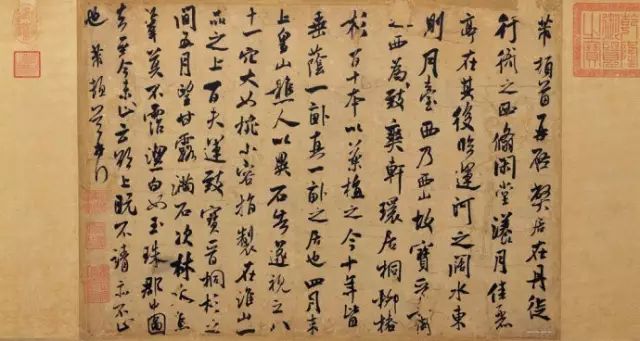 芾頓首再啓弊居在丹徒
行衙之西翛閑堂漾月佳麗
亭在其後臨運河之闊水東
則月臺西乃西山故寶晉齋
之西為致爽軒環居桐柳椿
杉百十本以藥植之今十年皆
垂蔭一畝真一畝之居也四月末
上皇山樵人以異石告遂視之八
十一穴大如椀小容指製在淮山一
品之上百夫運致寶晉桐杉之
間五月望甘露滿石次林木焦
葦莫不霑潔白如玉珠郡中圖
去至今未止云欲上既不請亦不止
也芾頓首